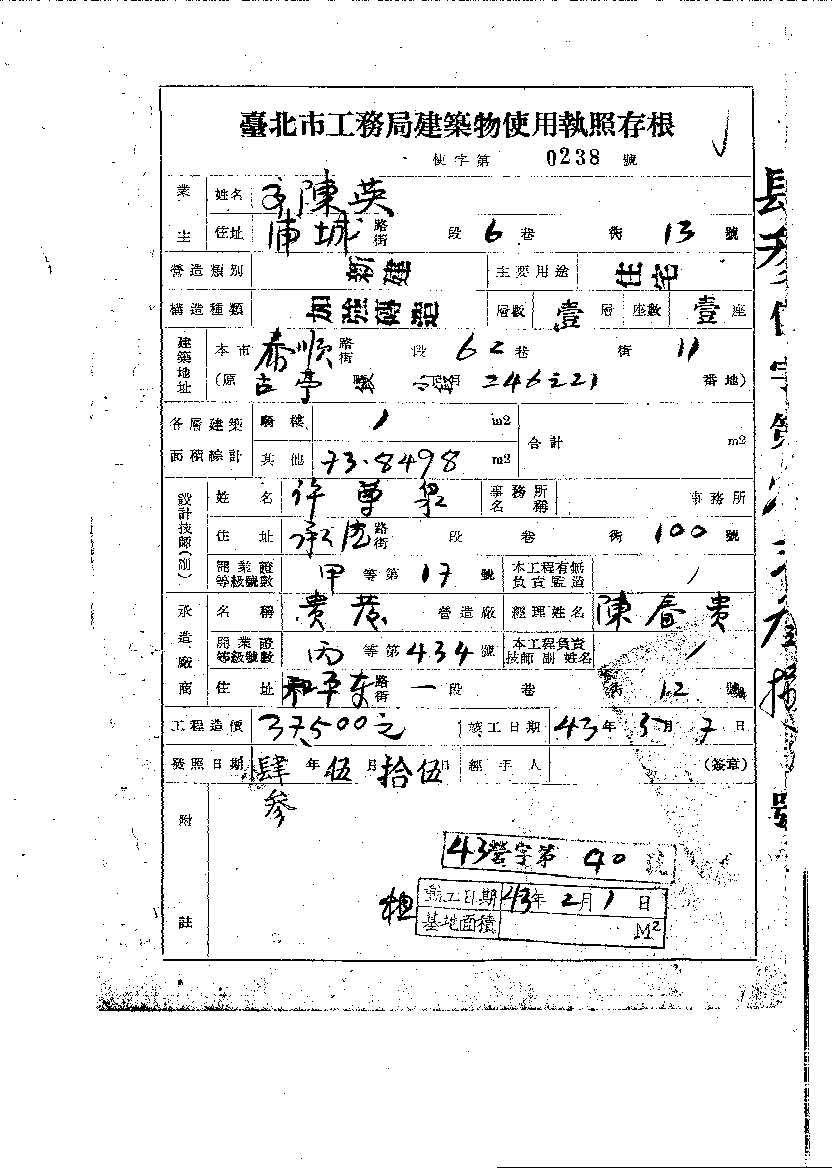 臺北市工務局建築物使用執照存根
使字第 0238 號
業主 姓名 陳英
住址 浦城 路街 段 6 巷 衖 13 號
營造類別 新建 主要用途 住宅
構造種類 加強磚造 層數 壹 層 座數 壹 座
建築地址 本市 泰順 路街 段 62 巷 衖 11
(原 古亭 段 小段 246之21 番地)
各層建築面積總計 騎樓 / m2 合計 m2
其他 73.8498 m2
設計技師(副) 姓名 許 事務所名稱 事務所
住址 承德 路街 段 巷 衖 100 號
開業證等級號數 甲 等第 17 號 本工程有無負責監造 /
承造廠商 名稱 貴 營造廠 經理姓名 陳 貴
開業證等級號數 丙 等第 434 號 本工程負責技師副姓名 /
住址 和平東 路街 一 段 巷 衖 12 號
工程造價 37,500元 竣工日期 43年 5月 7日
發照日期 肆參 年 伍 月 拾伍 日 經手人 (簽章)
附註
43營字第 40 號
動工日期 43年 2月 1日
基地面積 M²